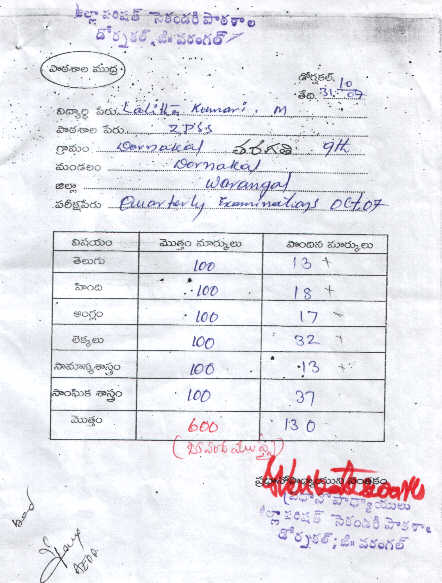 జిల్లా పరిషత్ సెకండరీ పాఠశాల
డోర్నకల్, జి॥ వరంగల్
పాఠశాల ముద్ర
డోర్నకల్,
తేది. 31.10.07
విద్యార్థి పేరు Lalitha Kumari. M
పాఠశాల పేరు ZPSS
గ్రామం Dornakal తరగతి 9th
మండలం Dornakal
జిల్లా Warangal
పరీక్షపేరు Quarterly Examinations Oct,07
విషయం మొత్తం మార్కులు పొందిన మార్కులు
తెలుగు 100 13 +
హింది 100 18 +
ఆంగ్లం 100 17
లెక్కలు 100 32 +
సామాన్యశాస్త్రం 100 13 +
సాంఘిక శాస్త్రం 100 37
మొత్తం 600 130
ప్రధానోపాధ్యాయుని సంతకం
ప్రధానోపాధ్యాయులు
జిల్లా పరిషత్ సెకండరీ పాఠశాల
డోర్నకల్; జి॥ వరంగల్